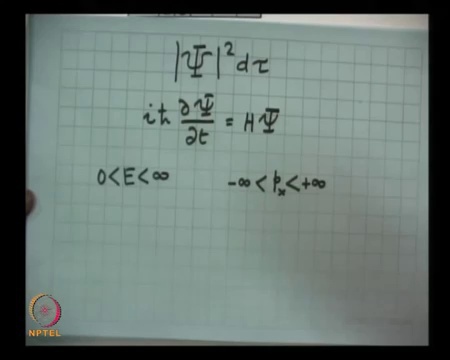 |Ψ|² dτ
iħ ∂Ψ/∂t = HΨ
0 < E < ∞    -∞ < pₓ < +∞
NPTEL